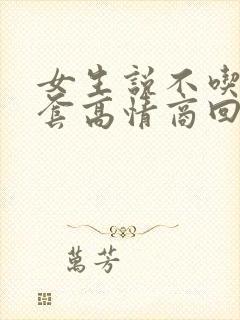 女生説不喫
套高情商回
萬芳